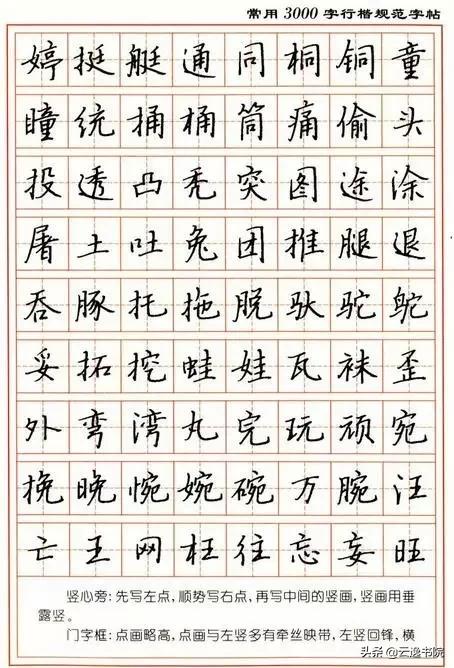 常用3000字行楷规范字帖
婷挺艇通同桐铜童
瞳统捅桶筒痛偷头
投透凸秃突图途涂
屠土吐兔团推腿退
吞豚托拖脱驮驼鸵
妥拓挖蛙娃瓦袜歪
外弯湾丸完玩顽宛
挽晚惋婉碗万腕汪
亡王网枉往忘妄旺
竖心旁:先写左点,顺势写右点,再写中间的竖画,竖画用垂
露竖。
门字框:点画略高,点画与左竖多有牵丝映带,左竖回锋,横
头条 @云逸书院